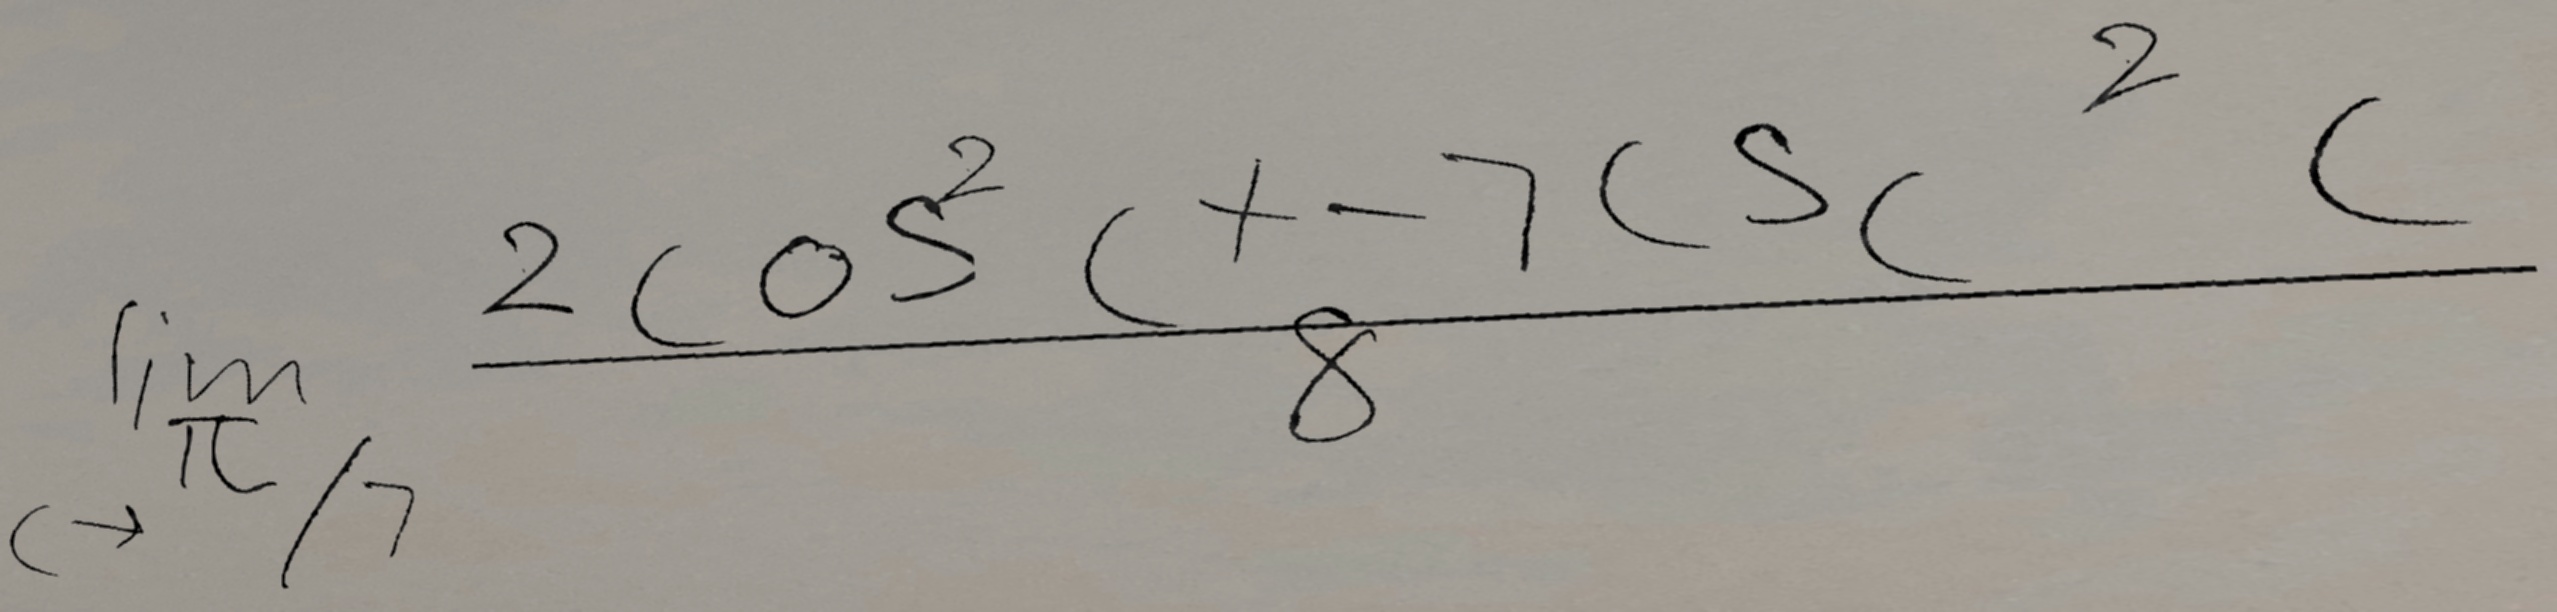 \lim_{c \to \pi/7} \frac{2 \cos^2 c + -7 \csc^2 c}{8}